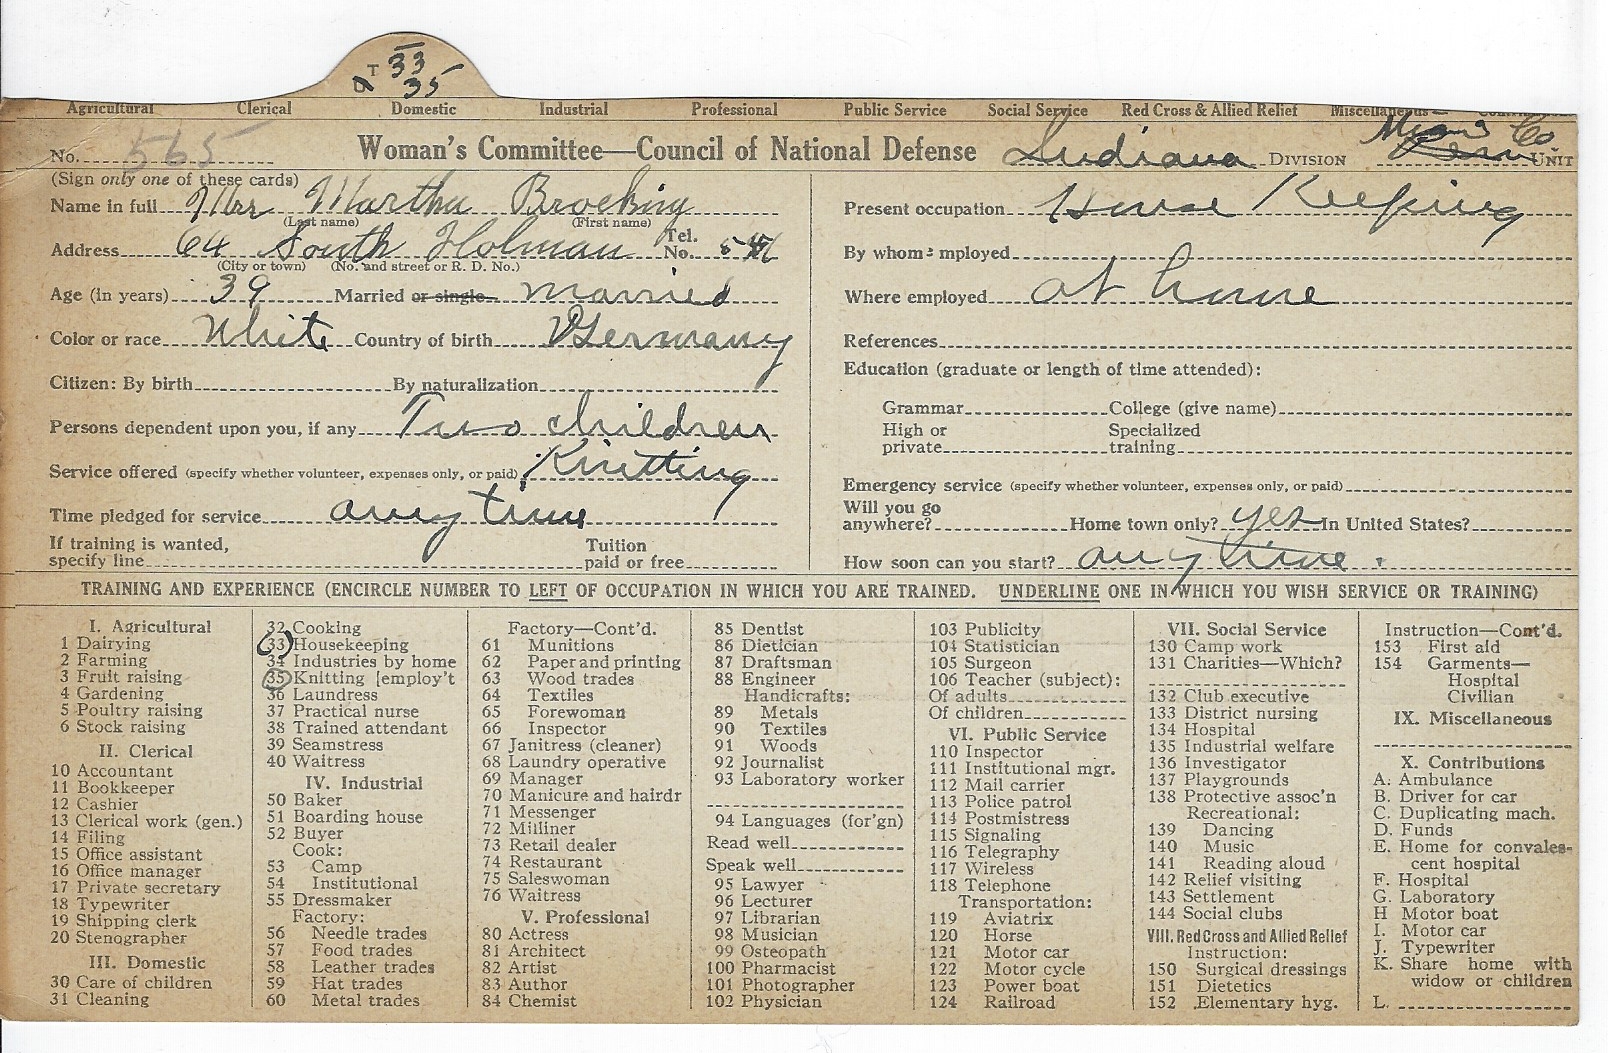 T 33
35
Agricultural Clerical Domestic Industrial Professional Public Service Social Service Red Cross & Allied Relief Miscellaneous
No. 565 Woman's Committee—Council of National Defense Indiana DIVISION Miami Co UNIT
(Sign only one of these cards)
Name in full Mrs Martha Brocking
(Last name) (First name)
Address 64 South Holman Tel. No.
(City or town) (No. and street or R. D. No.)
Age (in years) 39 Married or single married
Color or race White Country of birth Germany
Citizen: By birth By naturalization
Persons dependent upon you, if any Two children
Service offered (specify whether volunteer, expenses only, or paid) Knitting
Time pledged for service any time
If training is wanted, specify line Tuition paid or free
Present occupation House Keeping
By whom employed
Where employed at home
References
Education (graduate or length of time attended):
Grammar College (give name)
High or private Specialized training
Emergency service (specify whether volunteer, expenses only, or paid)
Will you go anywhere? Home town only? yes In United States?
How soon can you start? any time.
TRAINING AND EXPERIENCE (ENCIRCLE NUMBER TO LEFT OF OCCUPATION IN WHICH YOU ARE TRAINED. UNDERLINE ONE IN WHICH YOU WISH SERVICE OR TRAINING)
I. Agricultural
1 Dairying
2 Farming
3 Fruit raising
4 Gardening
5 Poultry raising
6 Stock raising
II. Clerical
10 Accountant
11 Bookkeeper
12 Cashier
13 Clerical work (gen.)
14 Filing
15 Office assistant
16 Office manager
17 Private secretary
18 Typewriter
19 Shipping clerk
20 Stenographer
III. Domestic
30 Care of children
31 Cleaning
32 Cooking
33 Housekeeping
34 Industries by home
35 Knitting [employ't
36 Laundress
37 Practical nurse
38 Trained attendant
39 Seamstress
40 Waitress
IV. Industrial
50 Baker
51 Boarding house
52 Buyer
Cook:
53 Camp
54 Institutional
55 Dressmaker
Factory:
56 Needle trades
57 Food trades
58 Leather trades
59 Hat trades
60 Metal trades
Factory—Cont'd.
61 Munitions
62 Paper and printing
63 Wood trades
64 Textiles
65 Forewoman
66 Inspector
67 Janitress (cleaner)
68 Laundry operative
69 Manager
70 Manicure and hairdr
71 Messenger
72 Milliner
73 Retail dealer
74 Restaurant
75 Saleswoman
76 Waitress
V. Professional
80 Actress
81 Architect
82 Artist
83 Author
84 Chemist
85 Dentist
86 Dietician
87 Draftsman
88 Engineer
Handicrafts:
89 Metals
90 Textiles
91 Woods
92 Journalist
93 Laboratory worker
94 Languages (for'gn)
Read well
Speak well
95 Lawyer
96 Lecturer
97 Librarian
98 Musician
99 Osteopath
100 Pharmacist
101 Photographer
102 Physician
103 Publicity
104 Statistician
105 Surgeon
106 Teacher (subject):
Of adults
Of children
VI. Public Service
110 Inspector
111 Institutional mgr.
112 Mail carrier
113 Police patrol
114 Postmistress
115 Signaling
116 Telegraphy
117 Wireless
118 Telephone
Transportation:
119 Aviatrix
120 Horse
121 Motor car
122 Motor cycle
123 Power boat
124 Railroad
VII. Social Service
130 Camp work
131 Charities—Which?
132 Club executive
133 District nursing
134 Hospital
135 Industrial welfare
136 Investigator
137 Playgrounds
138 Protective assoc'n
Recreational:
139 Dancing
140 Music
141 Reading aloud
142 Relief visiting
143 Settlement
144 Social clubs
VIII. Red Cross and Allied Relief
Instruction:
150 Surgical dressings
151 Dietetics
152 Elementary hyg.
Instruction—Cont'd.
153 First aid
154 Garments—
Hospital
Civilian
IX. Miscellaneous
X. Contributions
A. Ambulance
B. Driver for car
C. Duplicating mach.
D. Funds
E. Home for convales-
cent hospital
F. Hospital
G. Laboratory
H Motor boat
I. Motor car
J. Typewriter
K. Share home with
widow or children
L.